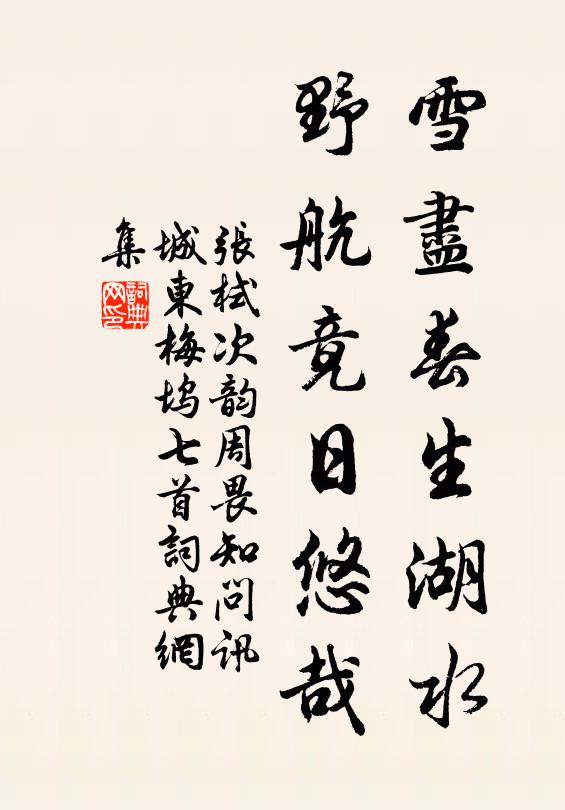 雪盡春生湖水
野航竟日悠哉
張栻次韵周畏知問訊
城東梅塢七首詞典網
集
詞典
网印